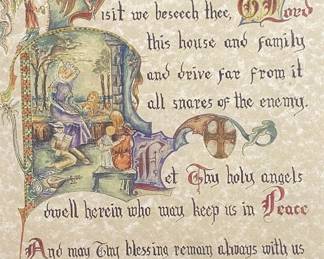 Visit we beseech thee, O Lord
this house and family
and drive far from it
all snares of the enemy.
Let Thy holy angels
dwell herein who may keep us in Peace
And may Thy blessing remain always with us